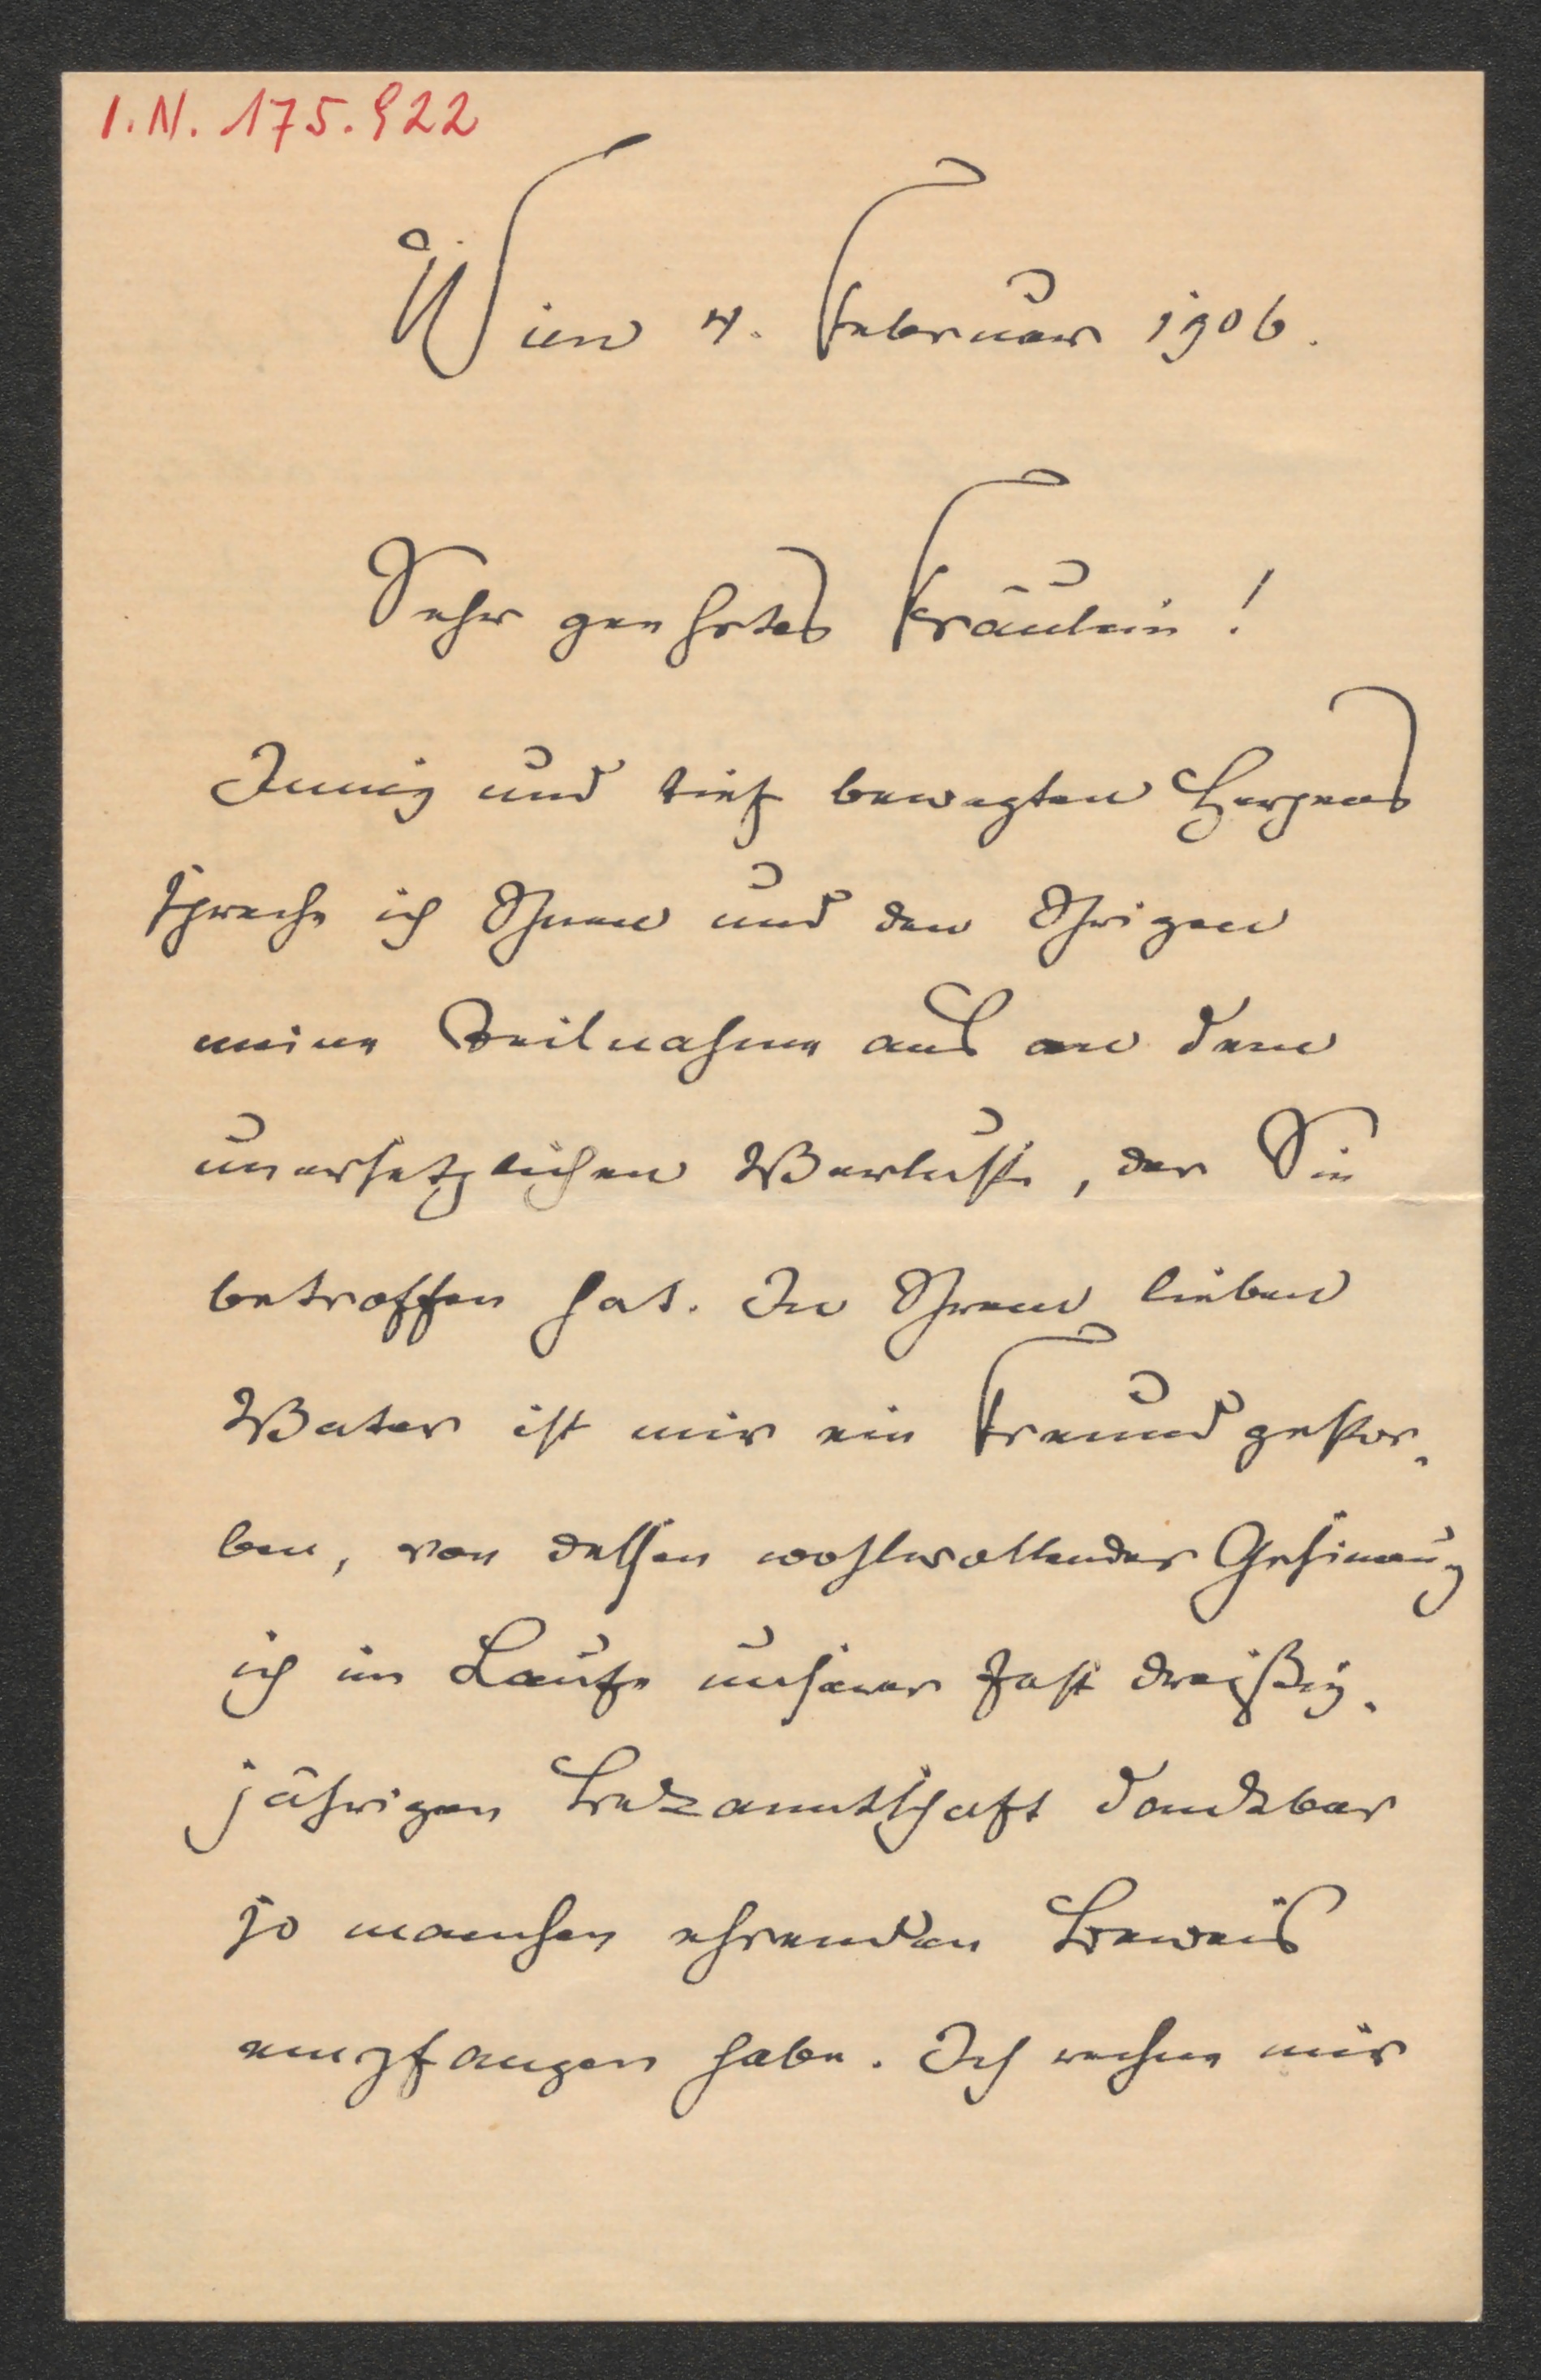 I.N. 175.922
Wien 4. Februar 1906.
Sehr geehrtes Fräulein!
Innig und tief bewegten Herzens
spreche ich Ihnen und den Ihrigen
meine Teilnahme aus an dem
unersetzlichen Verluste, der Sie
betroffen hat. In Ihrem lieben
Vater ist mir ein Freund gestor-
ben, von dessen wohlwollender Gesinnung
ich im Laufe unserer fast dreißig-
jährigen Bekanntschaft dankbar
so manchen ehrenden Beweis
empfangen habe. Ich rechne mir